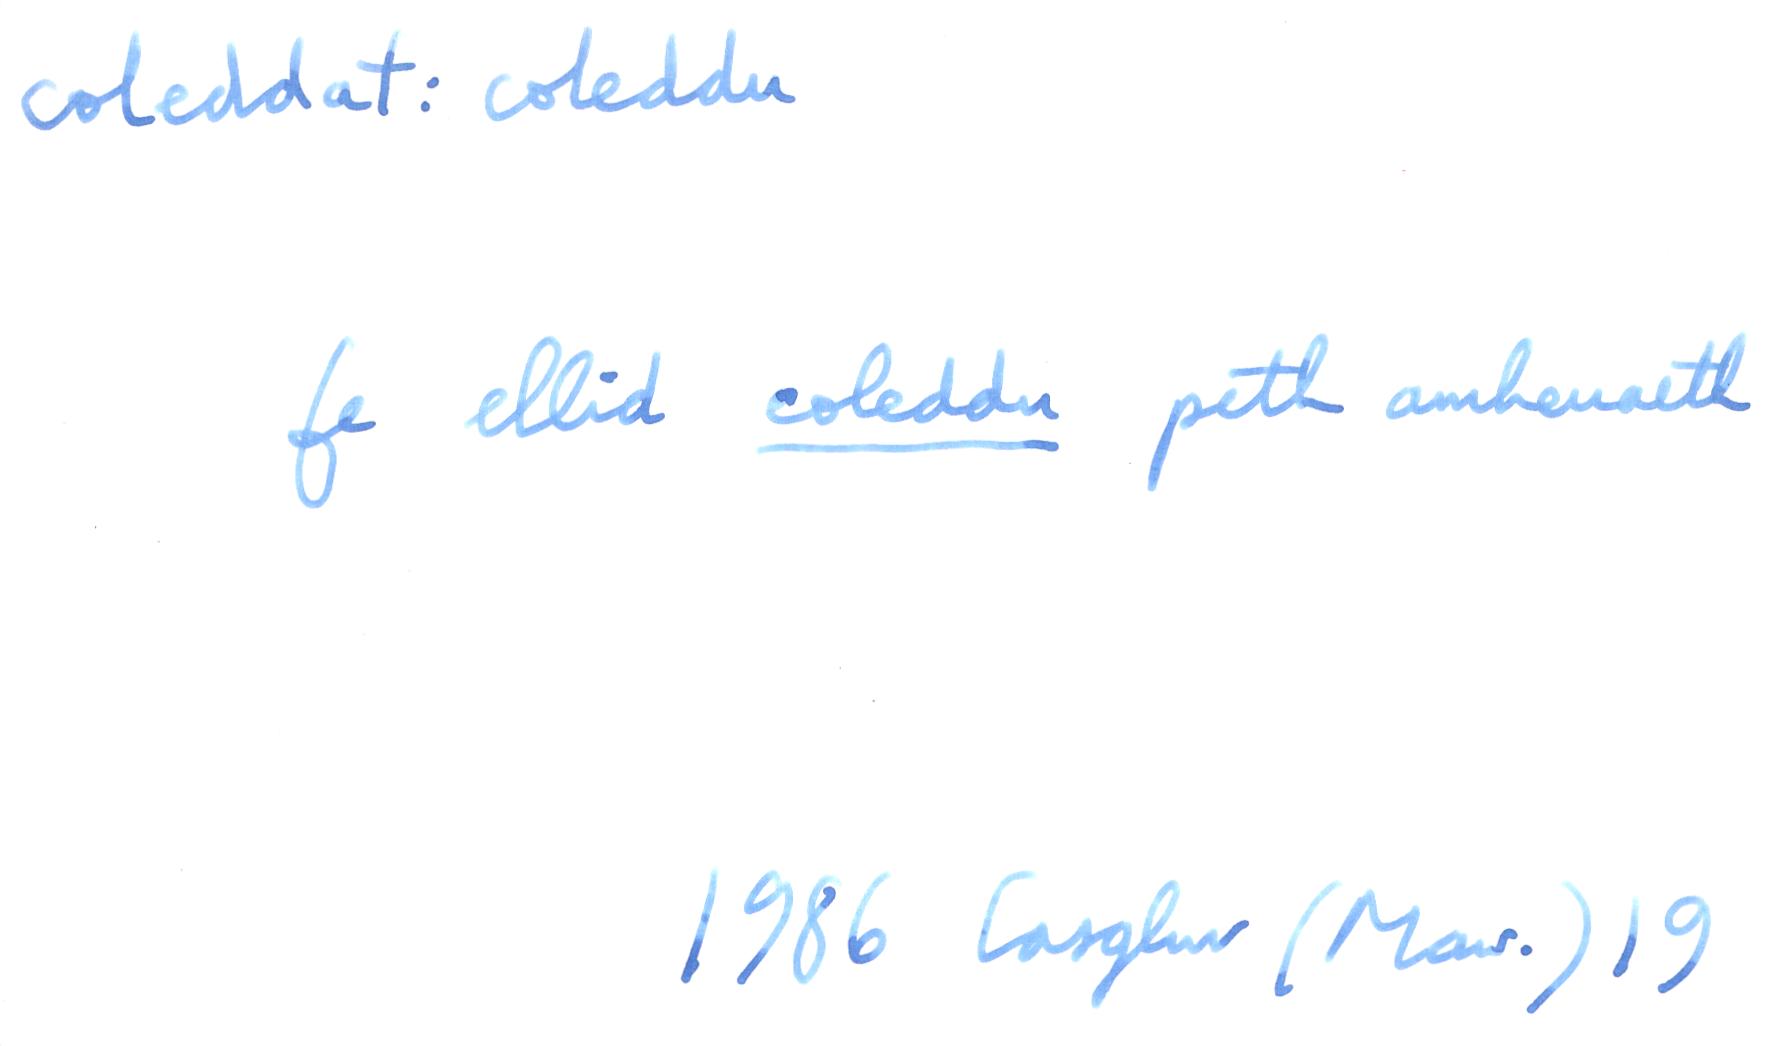 coleddat: coleddu
fe ellid coleddu peth amheuaeth
1986 Casglwr (Maw.) 19